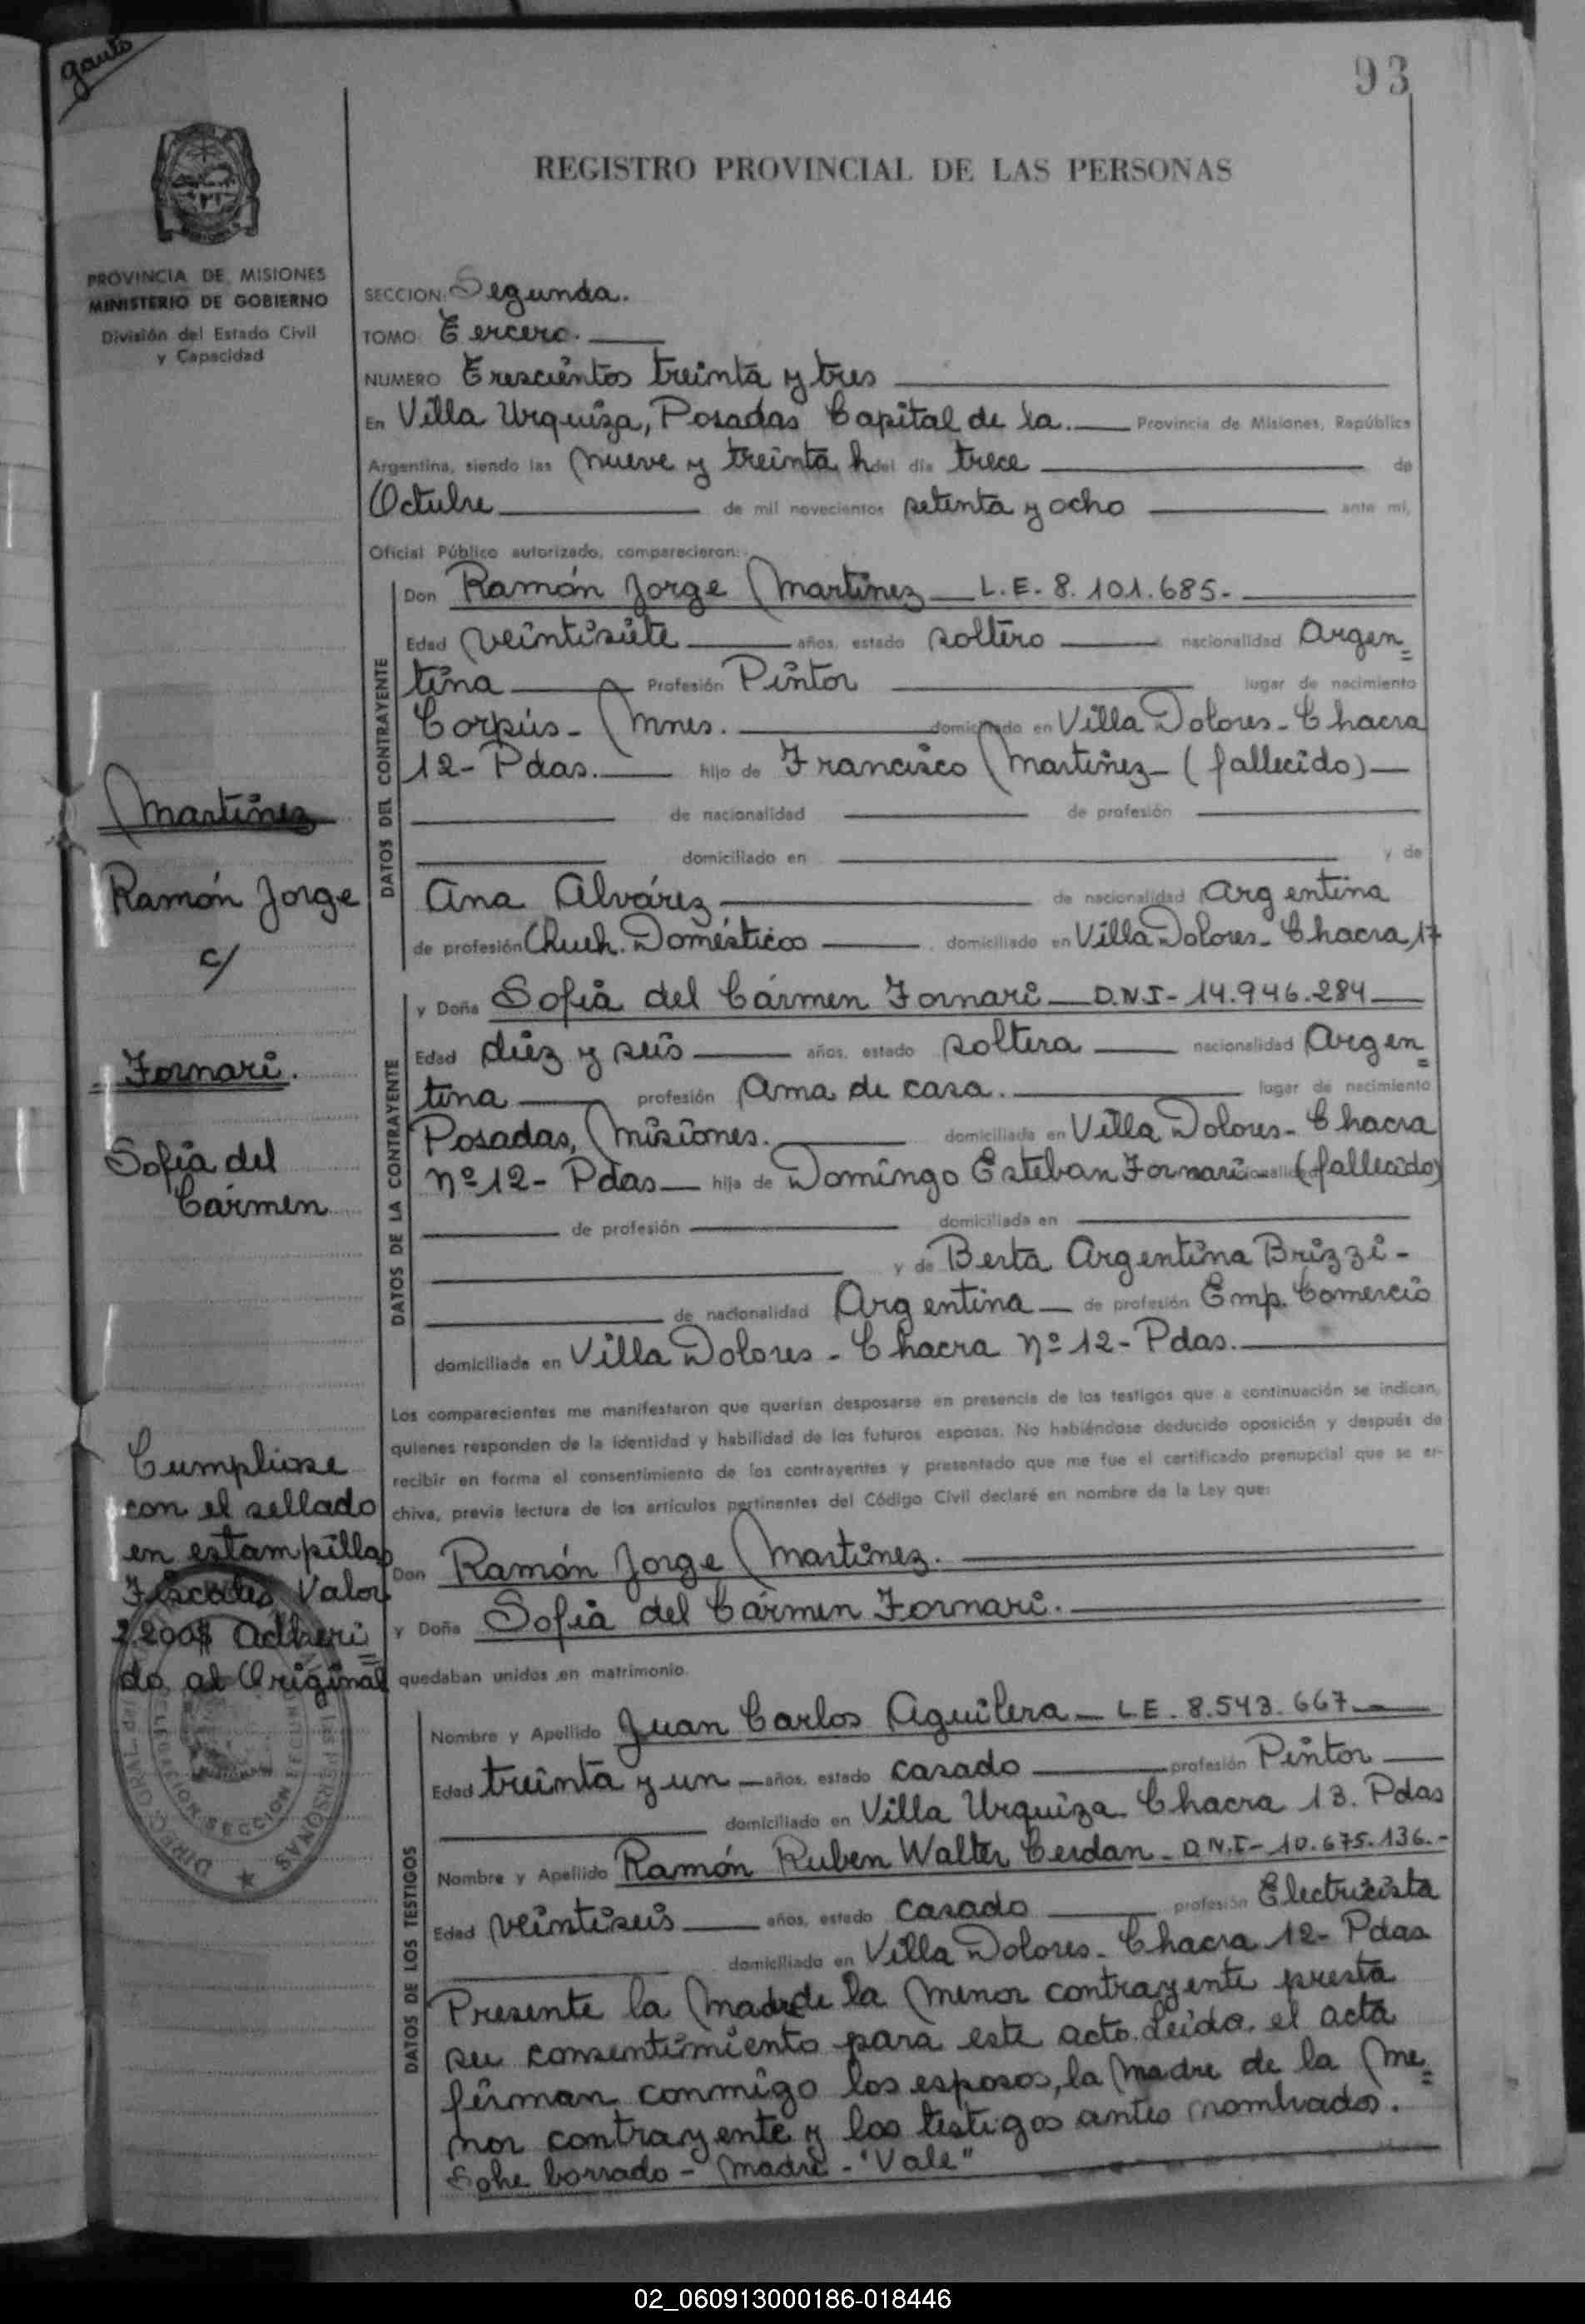 gauto
93
REGISTRO PROVINCIAL DE LAS PERSONAS
PROVINCIA DE MISIONES
MINISTERIO DE GOBIERNO
División del Estado Civil
y Capacidad
SECCION: Segunda.
TOMO: Tercero.
NUMERO Trescientos treinta y tres
En Villa Urquiza, Posadas Capital de la. Provincia de Misiones, República
Argentina, siendo las nueve y treinta h del día trece de
Octubre de mil novecientos setenta y ocho ante mí,
Oficial Público autorizado, comparecieron:
DATOS DEL CONTRAYENTE
Don Ramón Jorge Martinez L.E. 8.101.685.
Edad veintisiete años, estado soltero nacionalidad Argen=
tina Profesión Pintor lugar de nacimiento
Corpús - Mnes. domiciliado en Villa Dolores - Chacra
12- Pdas. hijo de Francisco Martinez - (fallecido)
de nacionalidad de profesión
domiciliado en y de
Ana Alvárez de nacionalidad Argentina
de profesión Queh. Domésticos domiciliado en Villa Dolores - Chacra 17
DATOS DE LA CONTRAYENTE
y Doña Sofia del Cármen Fornari D.N.I- 14.946.284
Edad diez y seis años, estado soltera nacionalidad Argen=
tina profesión Ama de casa. lugar de nacimiento
Posadas, Misiones. domiciliada en Villa Dolores - Chacra
nº 12- Pdas hija de Domingo Esteban Fornari - (fallecido)
de profesión domiciliada en
y de Berta Argentina Brizzi -
de nacionalidad Argentina de profesión Emp. Comercio
domiciliada en Villa Dolores - Chacra nº 12- Pdas.
Los comparecientes me manifestaron que querían desposarse en presencia de los testigos que a continuación se indican,
quienes responden de la identidad y habilidad de los futuros esposos. No habiéndose deducido oposición y después de
recibir en forma el consentimiento de los contrayentes y presentado que me fue el certificado prenupcial que se ar-
chiva, previa lectura de los artículos pertinentes del Código Civil declaré en nombre de la Ley que:
Don Ramón Jorge Martinez.
y Doña Sofia del Cármen Fornari.
quedaban unidos en matrimonio.
DATOS DE LOS TESTIGOS
Nombre y Apellido Juan Carlos Aguilera - L.E. 8.543.667
Edad treinta y un años, estado casado profesión Pintor
domiciliado en Villa Urquiza Chacra 13. Pdas
Nombre y Apellido Ramón Ruben Walter Cerdan - D.N.I- 10.675.136.-
Edad veintiseis años, estado casado profesión Electricista
domiciliado en Villa Dolores - Chacra 12- Pdas
Presente la Madre de la Menor contrayente presta
su consentimiento para este acto. Leida el acta
firman conmigo los esposos, la Madre de la Me=
nor contrayente y los testigos antes nombrados.
Sobre borrado - Madre - "Vale"
Martinez
Ramón Jorge
c/
Fornari.
Sofia del
Cármen
Cumpliose
con el sellado
en estampillas
Fiscales Valor
2.200$ Adheri=
do al Original
02_060913000186-018446